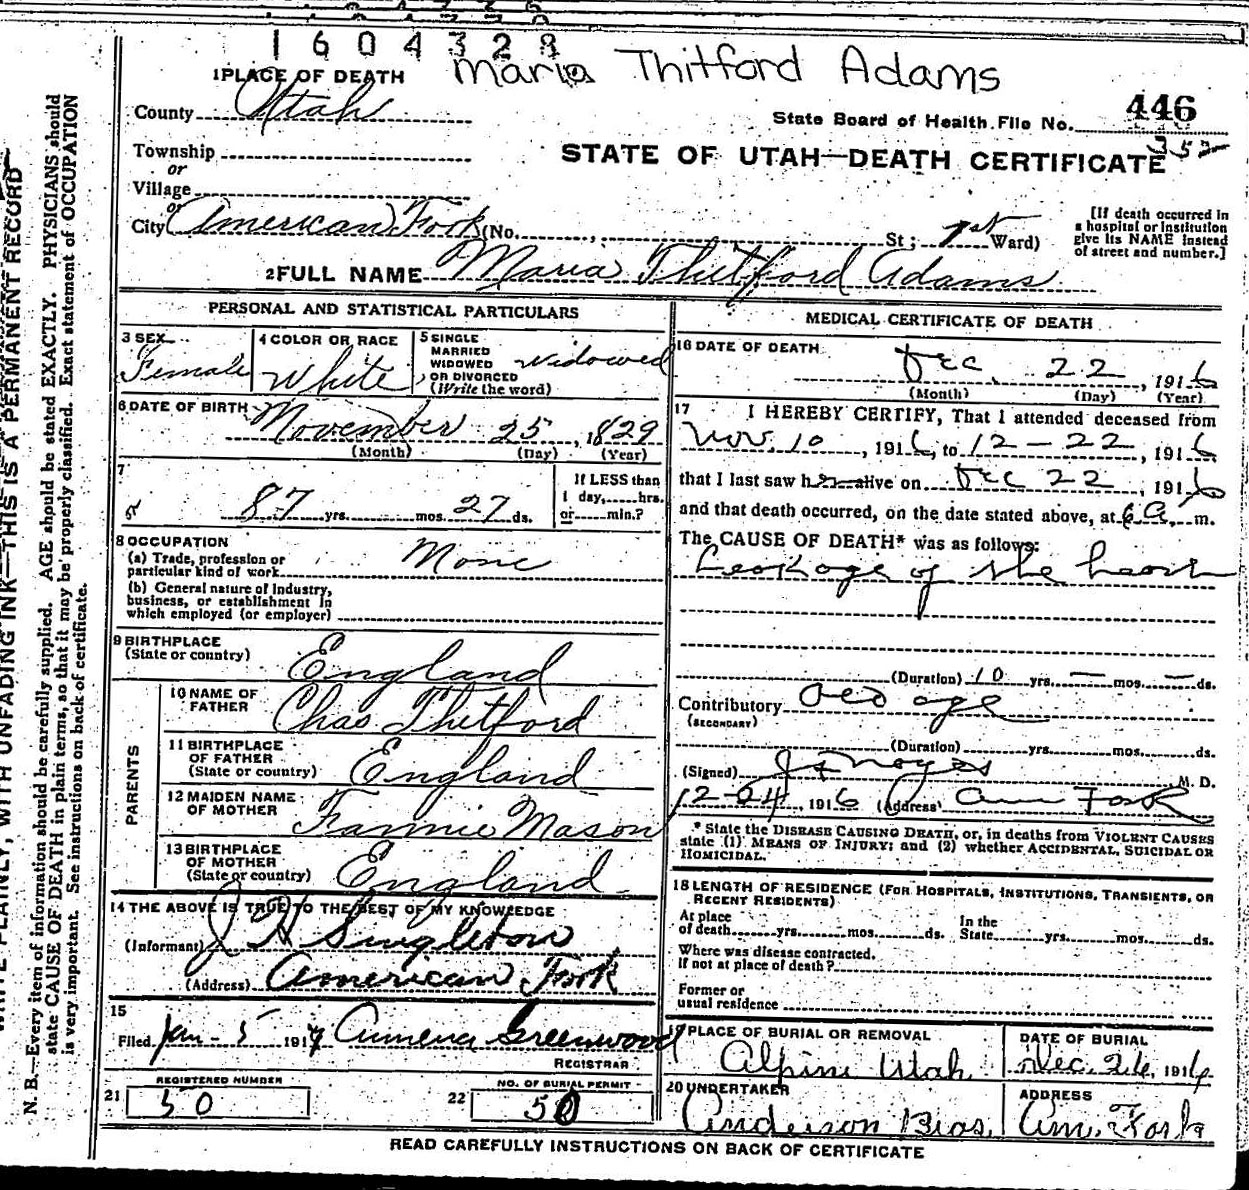 1604328
Maria Thitford Adams
1 PLACE OF DEATH
County Utah
State Board of Health File No. 446
352
Township
or
Village
or
City American Fork (No. , St; 1st Ward)
STATE OF UTAH—DEATH CERTIFICATE
[If death occurred in
a hospital or institution
give its NAME instead
of street and number.]
2 FULL NAME Maria Thetford Adams
PERSONAL AND STATISTICAL PARTICULARS
3 SEX
Female
4 COLOR OR RACE
White
5 SINGLE
MARRIED
WIDOWED
OR DIVORCED
(Write the word)
Widowed
6 DATE OF BIRTH
November 25, 1829
(Month) (Day) (Year)
7
87 yrs. mos. 27 ds.
If LESS than
1 day, hrs.
or min.?
8 OCCUPATION
(a) Trade, profession or
particular kind of work None
(b) General nature of industry,
business, or establishment in
which employed (or employer)
9 BIRTHPLACE
(State or country) England
PARENTS
10 NAME OF
FATHER Chas Thetford
11 BIRTHPLACE
OF FATHER
(State or country) England
12 MAIDEN NAME
OF MOTHER Fannie Mason
13 BIRTHPLACE
OF MOTHER
(State or country) England
14 THE ABOVE IS TRUE TO THE BEST OF MY KNOWLEDGE
(Informant) J H Singleton
(Address) American Fork
15
Filed Jan - 5 1917 Greenwood
REGISTRAR
21 REGISTERED NUMBER
50
22 NO. OF BURIAL PERMIT
50
MEDICAL CERTIFICATE OF DEATH
16 DATE OF DEATH
Dec. 22, 1916
(Month) (Day) (Year)
17 I HEREBY CERTIFY, That I attended deceased from
Nov. 10, 1916, to 12-22, 1916
that I last saw her alive on Dec 22, 1916
and that death occurred, on the date stated above, at 6 a. m.
The CAUSE OF DEATH* was as follows:
Leakage of the heart
(Duration) 10 yrs. — mos. — ds.
Contributory Old age
(SECONDARY)
(Duration) yrs. mos. ds.
(Signed) J F Noyes M. D.
12-24, 1916 (Address) Am Fork
* State the DISEASE CAUSING DEATH, or, in deaths from VIOLENT CAUSES
state (1) MEANS OF INJURY; and (2) whether ACCIDENTAL, SUICIDAL OR
HOMICIDAL.
18 LENGTH OF RESIDENCE (FOR HOSPITALS, INSTITUTIONS, TRANSIENTS, OR
RECENT RESIDENTS)
At place
of death yrs. mos. ds.
In the
State yrs. mos. ds.
Where was disease contracted,
If not at place of death?
Former or
usual residence
19 PLACE OF BURIAL OR REMOVAL
Alpine Utah
DATE OF BURIAL
Dec. 24, 1916
20 UNDERTAKER
Anderson Bros.
ADDRESS
Am. Fork
READ CAREFULLY INSTRUCTIONS ON BACK OF CERTIFICATE
WRITE PLAINLY, WITH UNFADING INK—THIS IS A PERMANENT RECORD
N. B.—Every item of information should be carefully supplied. AGE should be stated EXACTLY. PHYSICIANS should
state CAUSE OF DEATH in plain terms, so that it may be properly classified. Exact statement of OCCUPATION
is very important. See instructions on back of certificate.